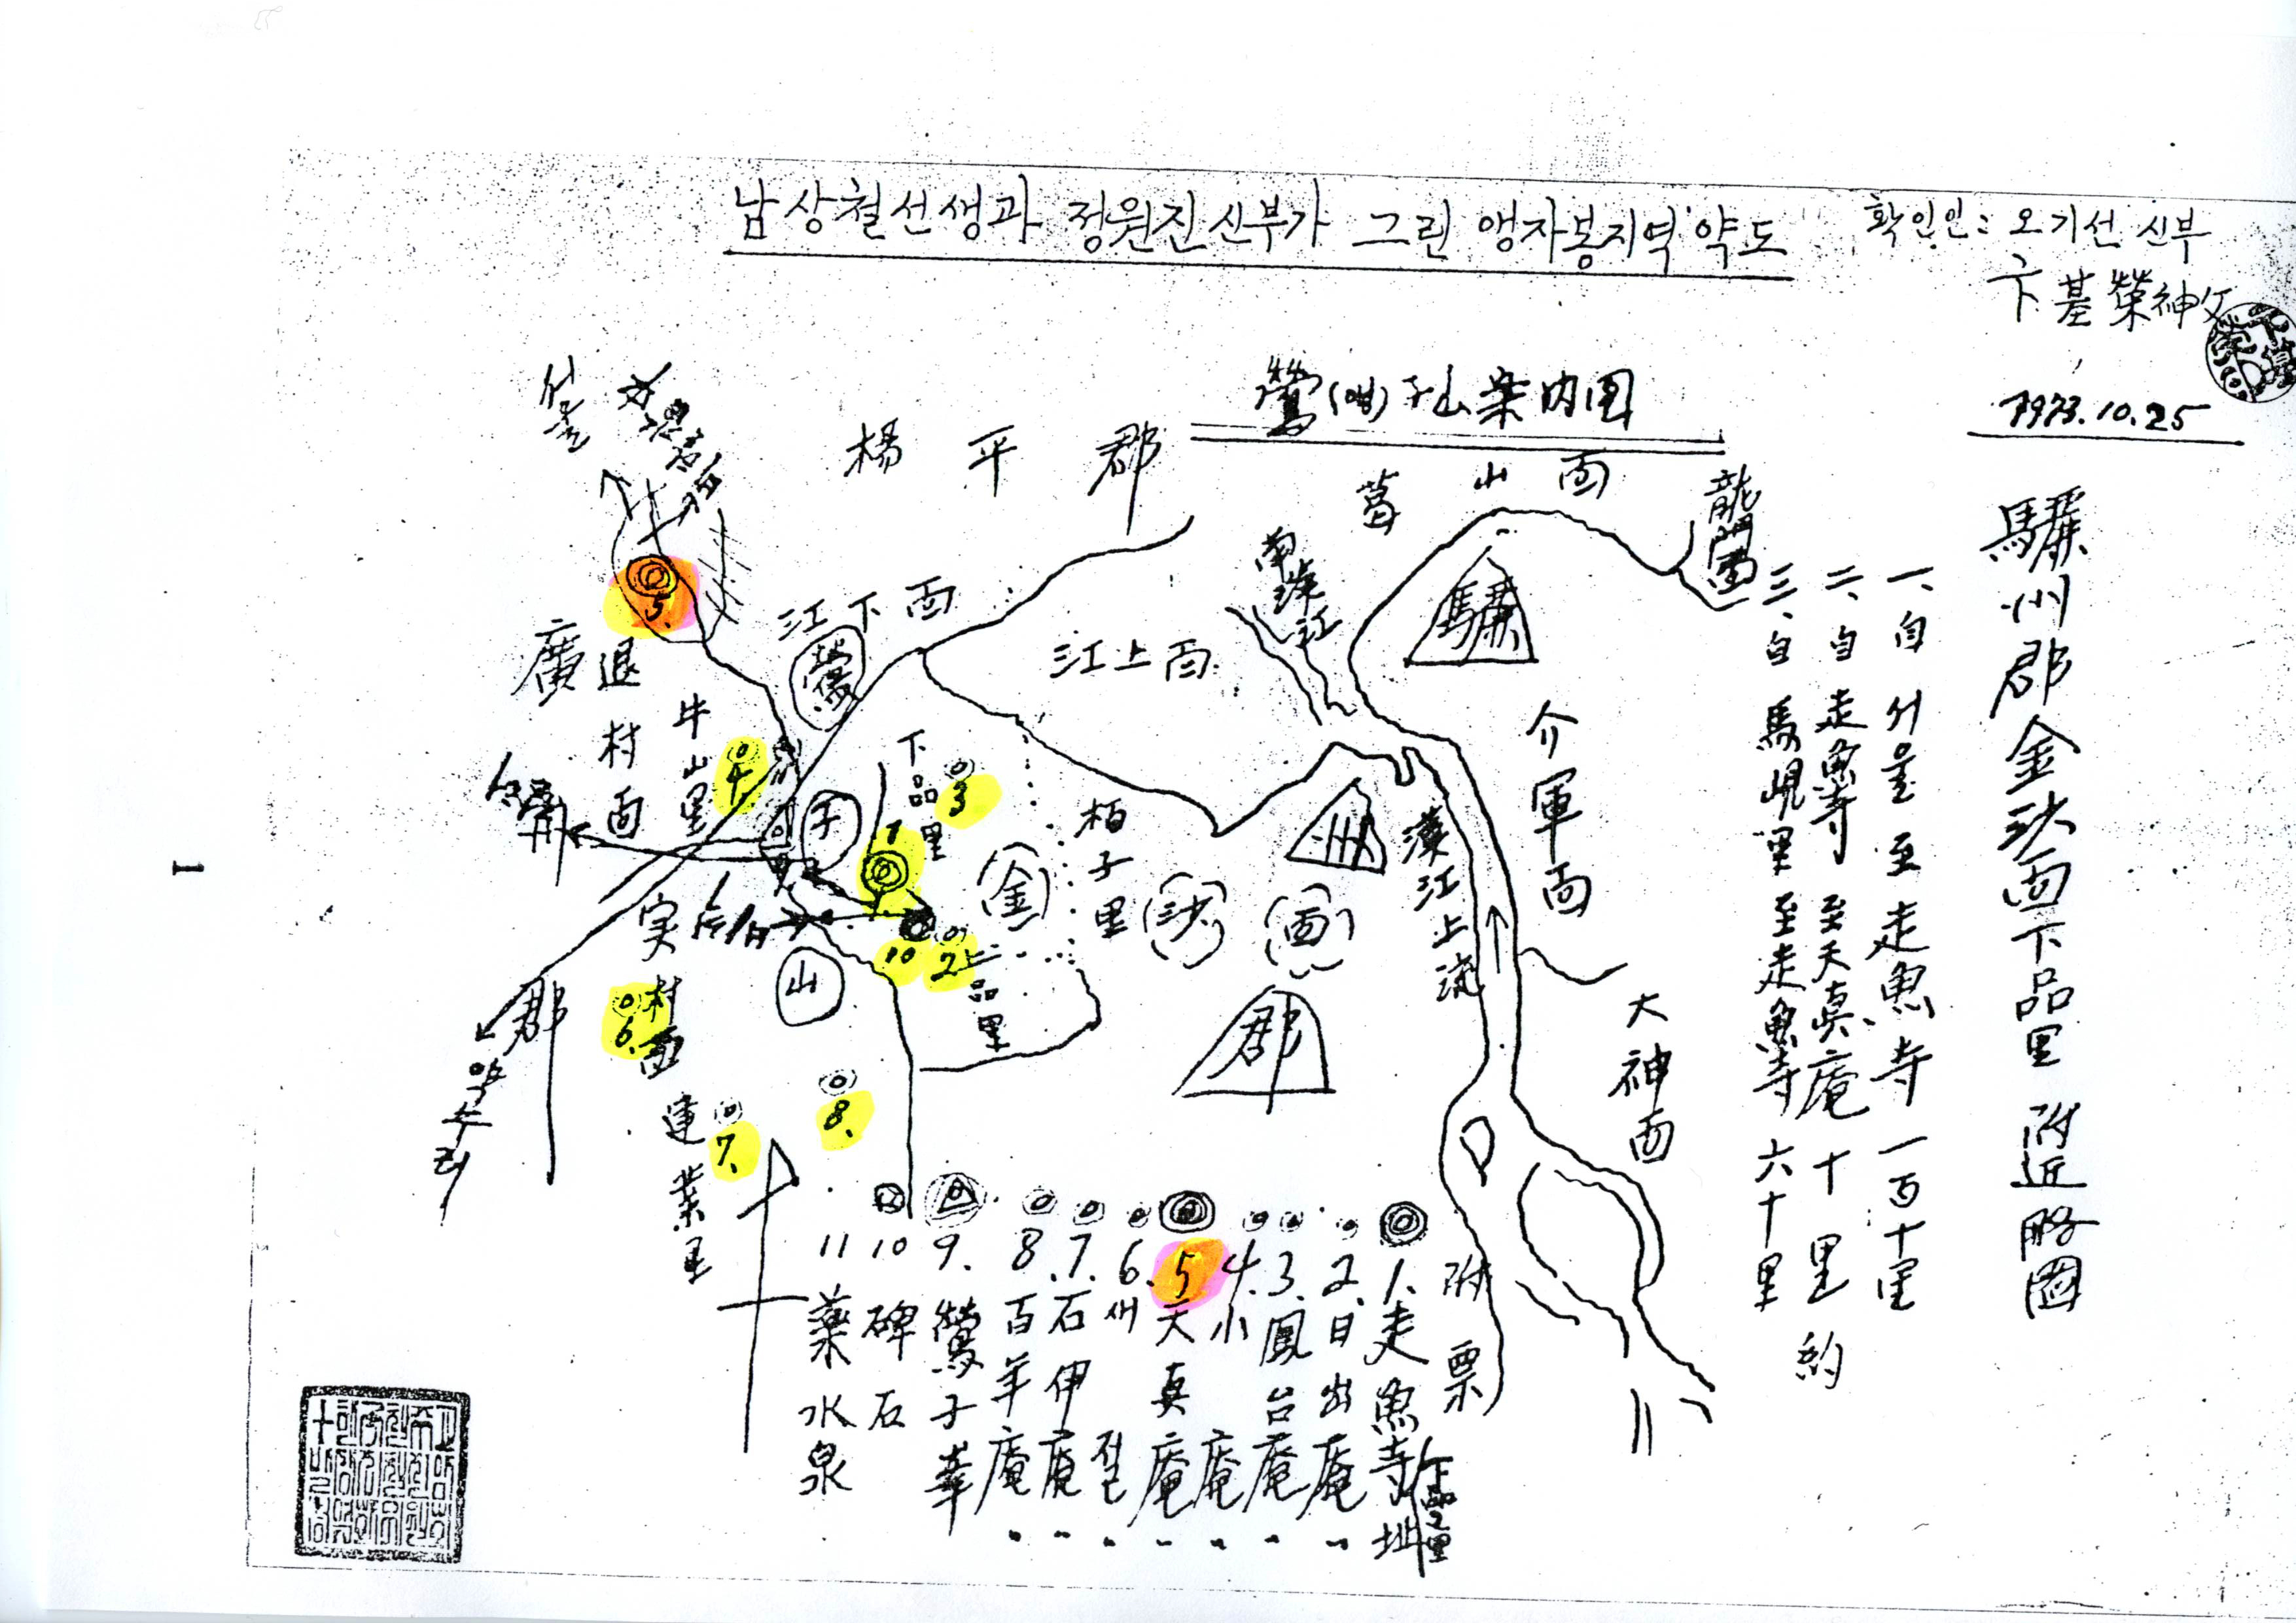 남상철선생과 정원진신부가 그린 앵자봉지역약도
확인인: 오기선 신부
卞基榮神父
1973.10.25
鶯子山案内図
驪州郡金沙面下品里 附近略圖
一、自 서울 至 走魚寺 一百十里
二、自 走魚寺 至天眞庵 十里 約
三、自 馬峴里 至走魚寺 六十里
楊平郡
葛山面
龍門面
江下面
江上面
南漢江
驪
州
郡
介軍面
大神面
漢江上流
栢子里
金
沙
面
下品里
上品里
鶯
子
山
廣
郡
退村面
牛山里
実村面
連業里
서울
5.
4
3
1
10
2
6.
7.
8.
附票
1. 走魚寺址
下品2里
2. 日出庵
3. 鳳台庵
4. 小庵
5 天真庵
6. 절
7. 石伊庵
8 百年庵
9. 鶯子峯
10 碑石
11 薬水泉
1